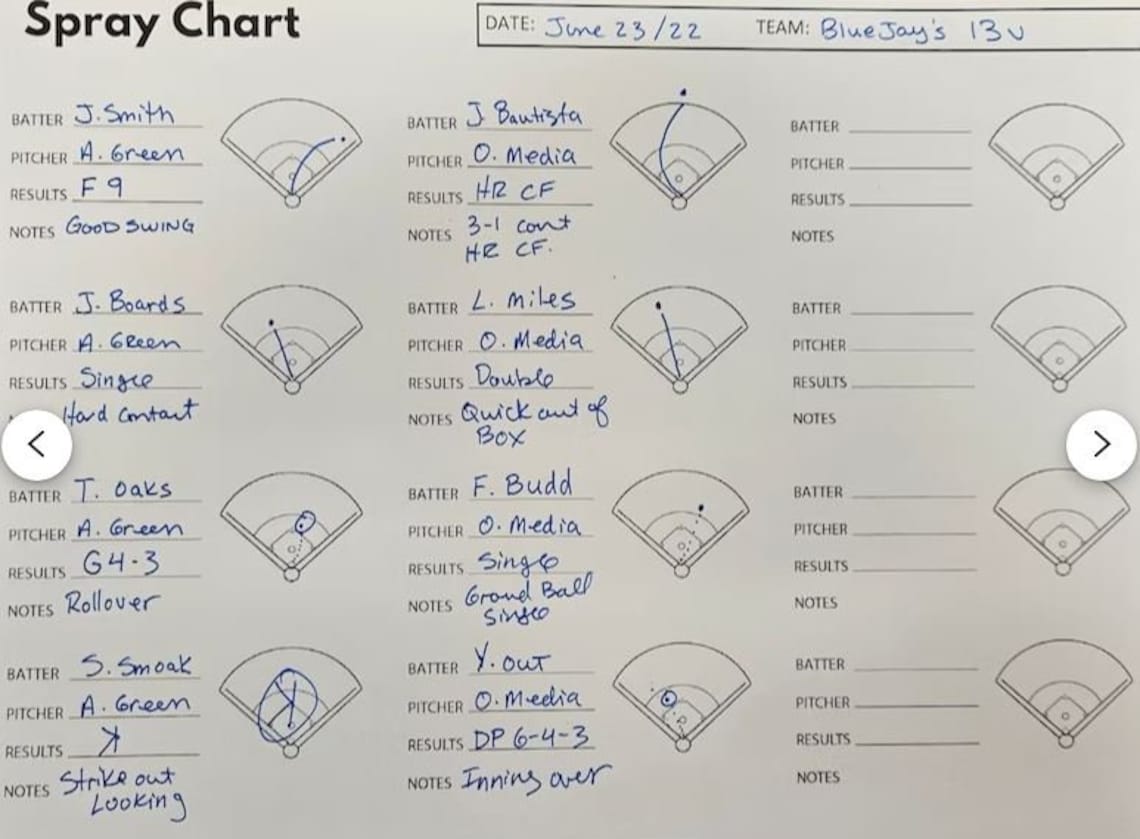 Spray Chart
DATE: June 23/22 TEAM: BlueJay's 13U
BATTER J. Smith
PITCHER A. Green
RESULTS F 9
NOTES GOOD SWING
BATTER J. Boards
PITCHER A. Green
RESULTS Single
Hard Contact
BATTER T. Oaks
PITCHER A. Green
RESULTS G4-3
NOTES Rollover
BATTER S. Smoak
PITCHER A. Green
RESULTS ꓘ
NOTES Strike out
Looking
BATTER J Bautista
PITCHER O. Media
RESULTS HR CF
NOTES 3-1 count
HR CF.
BATTER L. Miles
PITCHER O. Media
RESULTS Double
NOTES Quick out of
Box
BATTER F. Budd
PITCHER O. Media
RESULTS Single
NOTES Ground Ball
Single
BATTER Y. OUT
PITCHER O. Media
RESULTS DP 6-4-3
NOTES Inning over
BATTER
PITCHER
RESULTS
NOTES
BATTER
PITCHER
RESULTS
NOTES
BATTER
PITCHER
RESULTS
NOTES
BATTER
PITCHER
RESULTS
NOTES